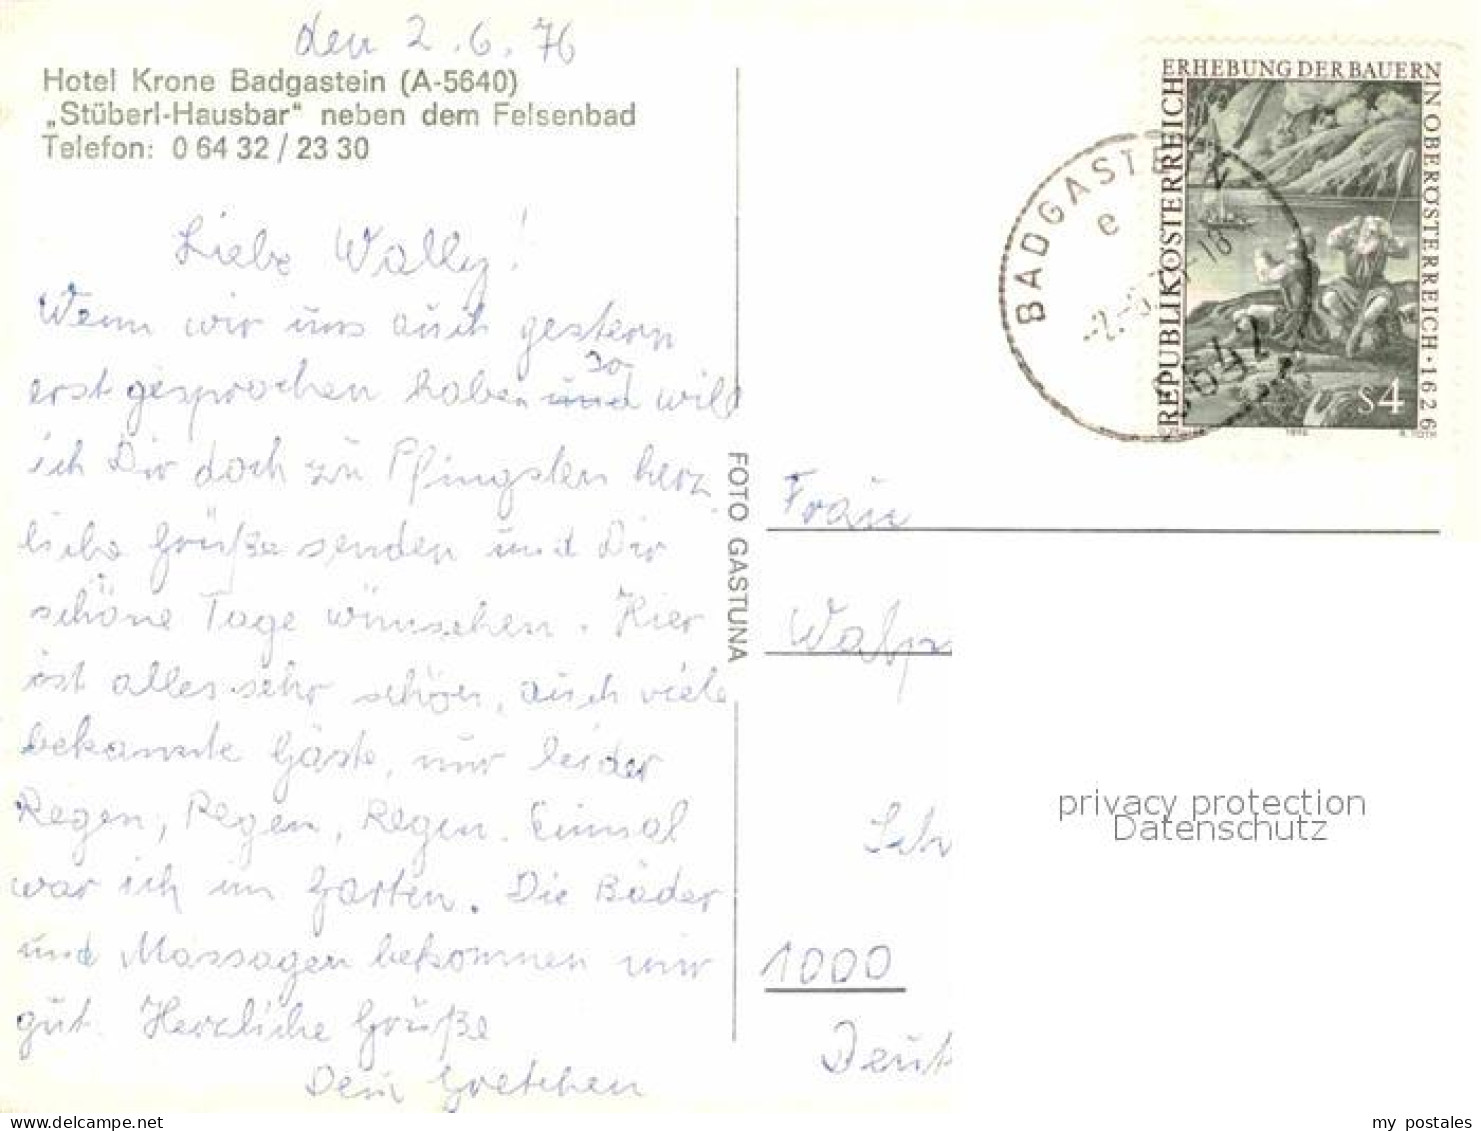 den 2.6.76
Hotel Krone Badgastein (A-5640)
„Stüberl-Hausbar“ neben dem Felsenbad
Telefon: 0 64 32 / 23 30
Liebe Wally!
Wenn wir uns auch gestern
erst gesprochen haben und so will
ich Dir doch zu Pfingsten herz
liche Grüße senden und Dir
schöne Tage wünschen. Hier
ist alles sehr schön, auch viele
bekannte Gäste, nur leider
Regen, Regen, Regen. Einmal
war ich im Garten. Die Bäder
und Massagen bekommen mir
gut. Herzliche Grüße
Dein Gretchen
FOTO GASTUNA
ERHEBUNG DER BAUERN
IN OBERÖSTERREICH · 1626
REPUBLIK ÖSTERREICH
S4
1976
BADGASTEIN
e
5640
Frau
Walpu
Sch
1000
Deut
privacy protection
Datenschutz
www.delcampe.net
my_postales